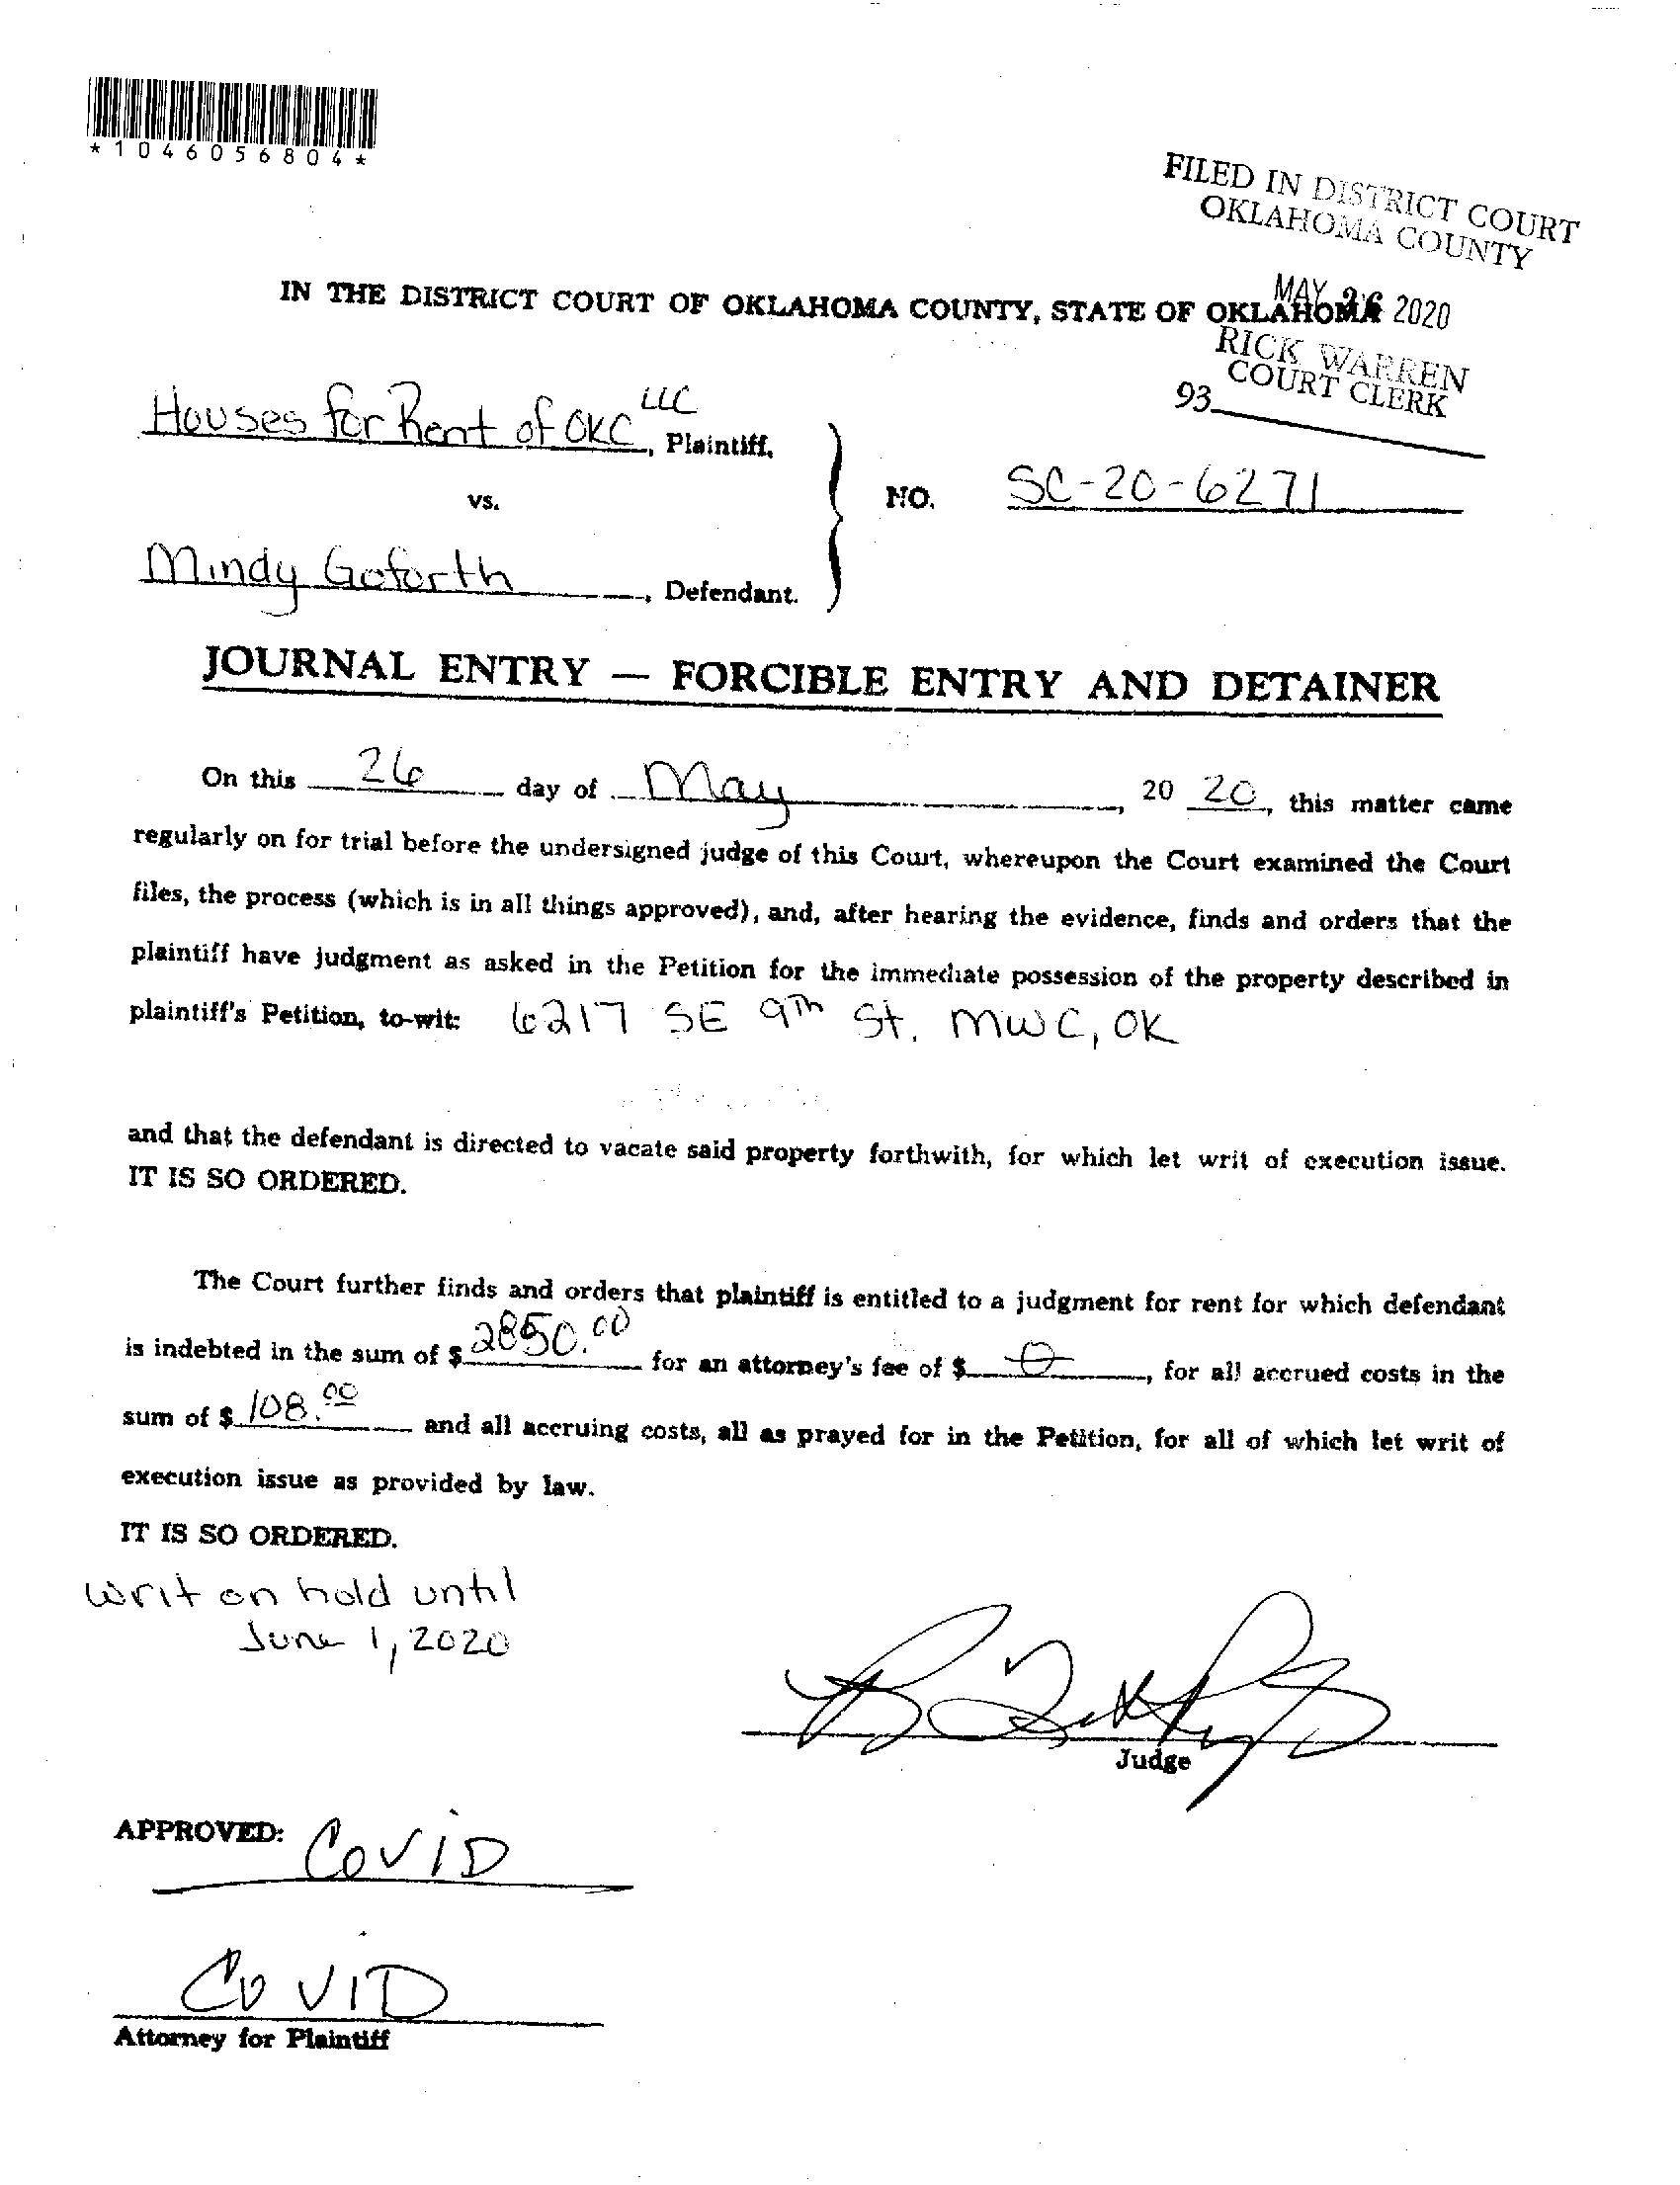 *1046056804*
FILED IN DISTRICT COURT
OKLAHOMA COUNTY
MAY 26 2020
RICK WARREN
COURT CLERK
93
IN THE DISTRICT COURT OF OKLAHOMA COUNTY, STATE OF OKLAHOMA
Houses for Rent of OKC LLC, Plaintiff,
vs.
NO. SC-20-6271
Mindy Goforth, Defendant.
JOURNAL ENTRY — FORCIBLE ENTRY AND DETAINER
On this 26 day of May, 20 20, this matter came
regularly on for trial before the undersigned judge of this Court, whereupon the Court examined the Court
files, the process (which is in all things approved), and, after hearing the evidence, finds and orders that the
plaintiff have judgment as asked in the Petition for the immediate possession of the property described in
plaintiff's Petition, to-wit: 6217 SE 9th St. MWC, OK
and that the defendant is directed to vacate said property forthwith, for which let writ of execution issue.
IT IS SO ORDERED.
The Court further finds and orders that plaintiff is entitled to a judgment for rent for which defendant
is indebted in the sum of $ 2850.00 for an attorney's fee of $ 0, for all accrued costs in the
sum of $ 108.00 and all accruing costs, all as prayed for in the Petition, for all of which let writ of
execution issue as provided by law.
IT IS SO ORDERED.
writ on hold until
June 1, 2020
Judge
APPROVED: COVID
COVID
Attorney for Plaintiff